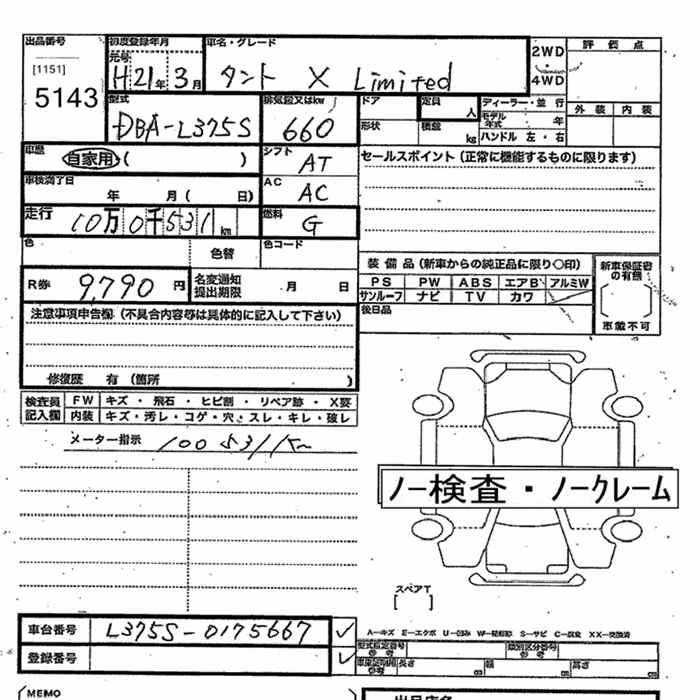 出品番号 初度登録年月 車名・グレード 2WD 評価点
元号
[1151] H21年 3月 タント X Limited 4WD
5143 型式 排気量又はkw ドア 定員 人 ディーラー・並行 外装 内装
DBA-L375S 660 形状 積載 kg モデル年式 年
ハンドル 左・右
車歴 自家用 ( ) シフト AT セールスポイント(正常に機能するものに限ります)
車検満了日 年 月 ( 日) AC AC
走行 10万0千531km 燃料 G
色 色替 色コード 装備品(新車からの純正品に限り○印) 新車保証書の有無
R券 9,790 円 名変通知提出期限 月 日 PS PW ABS エアB アルミW
サンルーフ ナビ TV カワ
注意事項申告欄(不具合内容等は具体的に記入して下さい) 後日品 車載不可
修復歴 有(箇所 )
検査員 FW キズ・飛石・ヒビ割・リペア跡・X要
記入欄 内装 キズ・汚レ・コゲ・穴・スレ・キレ・破レ
メーター指示 100531km
ノー検査・ノークレーム
スペアT
[ ]
車台番号 L375S-0175667 A-キズ E-エクボ U-凹ミ W-補修跡 S-サビ C-腐食 XX-交換済
登録番号 型式指定番号 参考 類別区分番号 参考
車庫証明用 参考 長さ cm 幅 cm 高さ cm
MEMO 出品店名